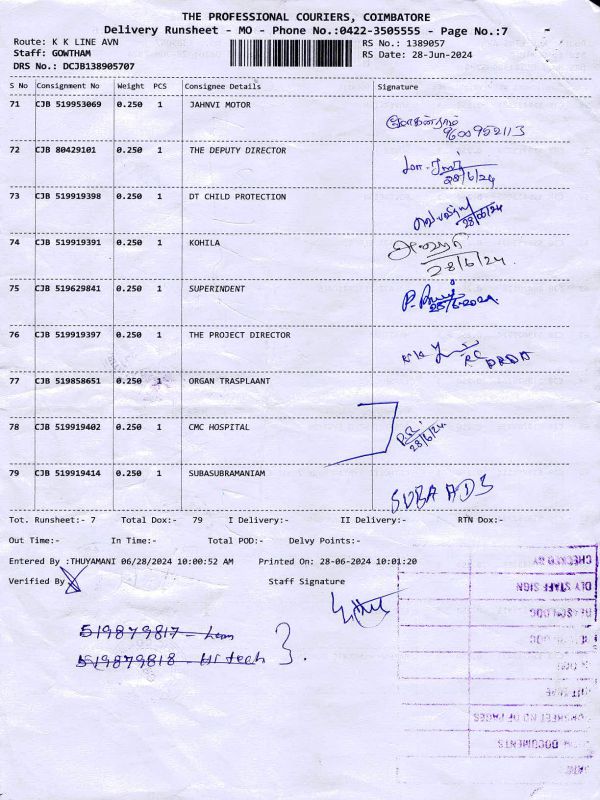 THE PROFESSIONAL COURIERS, COIMBATORE
Delivery Runsheet - MO - Phone No.:0422-3505555 - Page No.:7
Route: K K LINE AVN
RS No.: 1389057
Staff: GOWTHAM
RS Date: 28-Jun-2024
DRS No.: DCJB138905707
S No Consignment No Weight PCS Consignee Details Signature
71 CJB 519953069 0.250 1 JAHNVI MOTOR
9600952113
72 CJB 80429101 0.250 1 THE DEPUTY DIRECTOR
28/6/24
73 CJB 519919398 0.250 1 DT CHILD PROTECTION
28/06/24
74 CJB 519919391 0.250 1 KOHILA
28/6/24.
75 CJB 519629841 0.250 1 SUPERINDENT
76 CJB 519919397 0.250 1 THE PROJECT DIRECTOR
DRDA
77 CJB 519858651 0.250 1 ORGAN TRASPLAANT
78 CJB 519919402 0.250 1 CMC HOSPITAL
28/6/24.
79 CJB 519919414 0.250 1 SUBASUBRAMANIAM
SUBA ADS
Tot. Runsheet:- 7 Total Dox:- 79 I Delivery:- II Delivery:- RTN Dox:-
Out Time:- In Time:- Total POD:- Delvy Points:-
Entered By :THUYAMANI 06/28/2024 10:00:52 AM Printed On: 28-06-2024 10:01:20
Verified By Staff Signature
CHECKED BY
DLY STAFF SIGN
519879817
519879818 - Hi tech
NO OF PAGES
DOCUMENTS